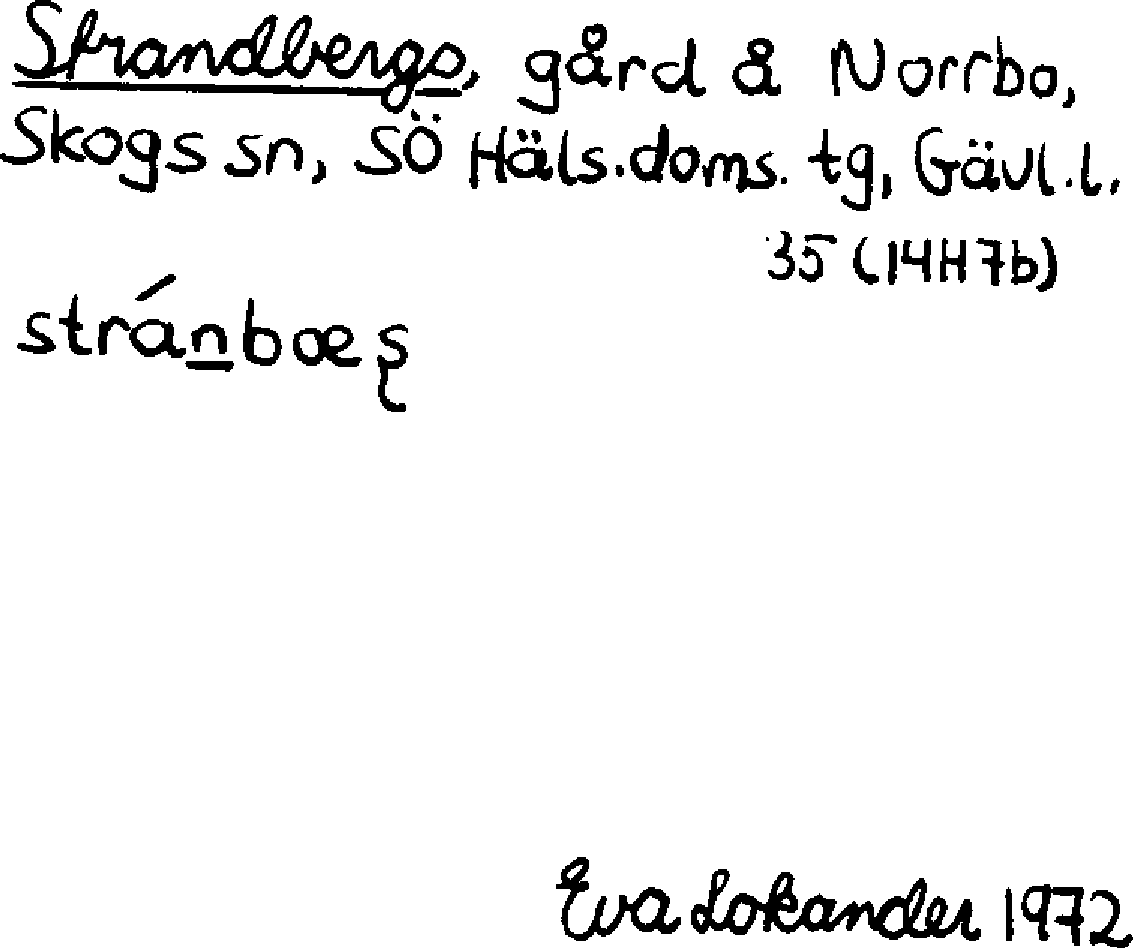 Strandbergs, gård å Norrbo,
Skogs sn, SÖ Häls.doms. tg, Gävl.l.
35 (14H7b)
stránbæʂ
Eva Lokander 1972